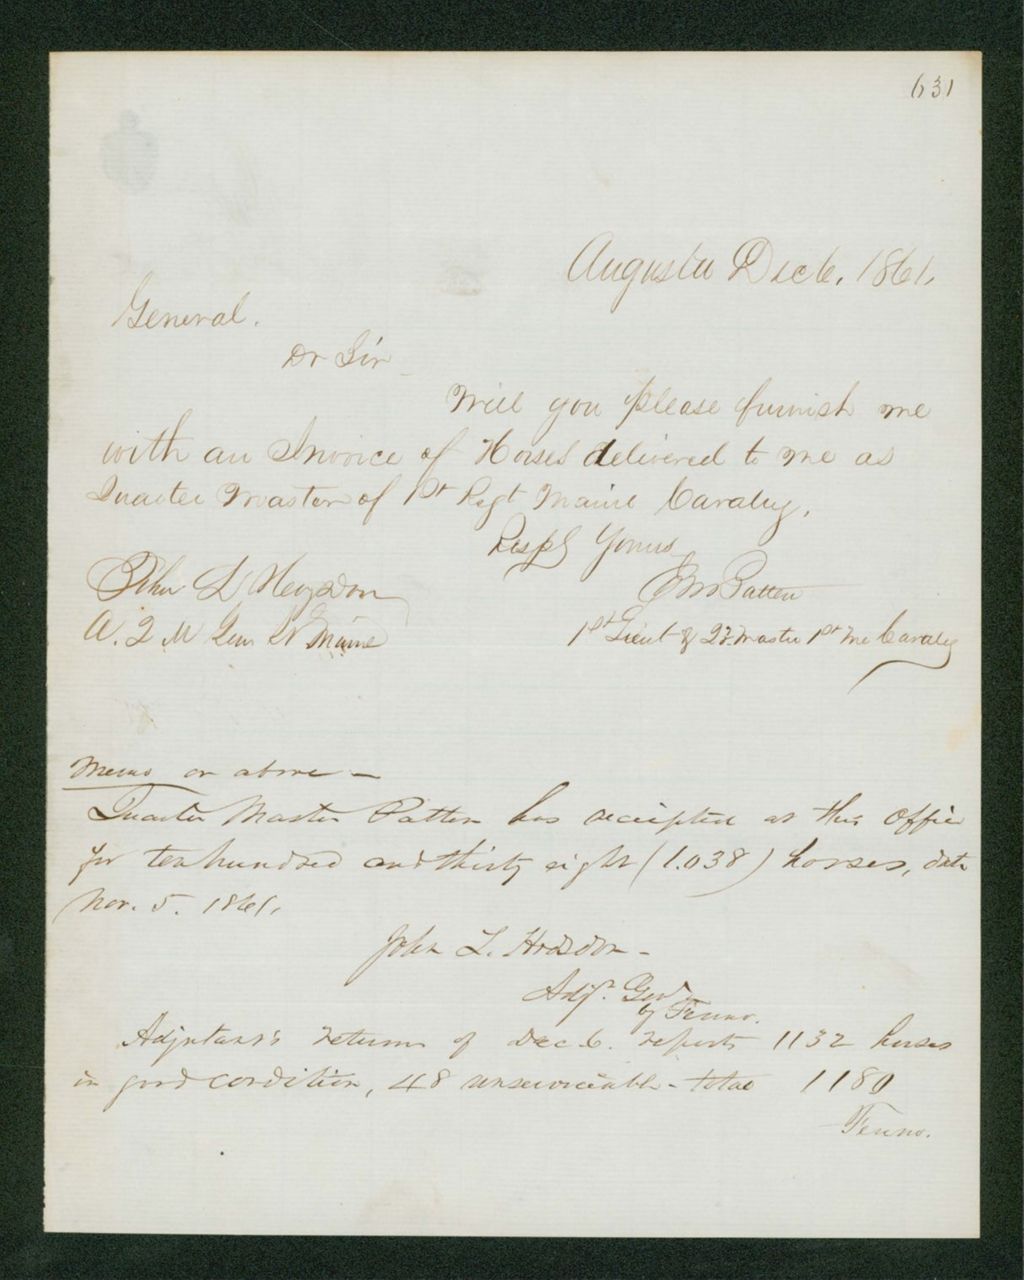 631
Augusta Dec 6, 1861,
General.
Dr Sir
Will you please furnish me
with an Invoice of Horses delivered to me as
Quarter Master of 1st Regt Maine Cavalry,
Respy Yours
John L Hodsdon
E M Patten
A. Q M Gen Maine
1st Lieut & Qr. Master 1st Me Cavalry
Memo on above —
Quarter Master Patten has receipted at this Office
for ten hundred and thirty eight (1.038) horses, date
Nov. 5. 1861.
John L. Hodsdon —
Adjt. Genl
by Fenno.
Adjutant's return of Dec 6. reports 1132 horses
in good condition, 48 unserviceable - total 1180
Fenno.